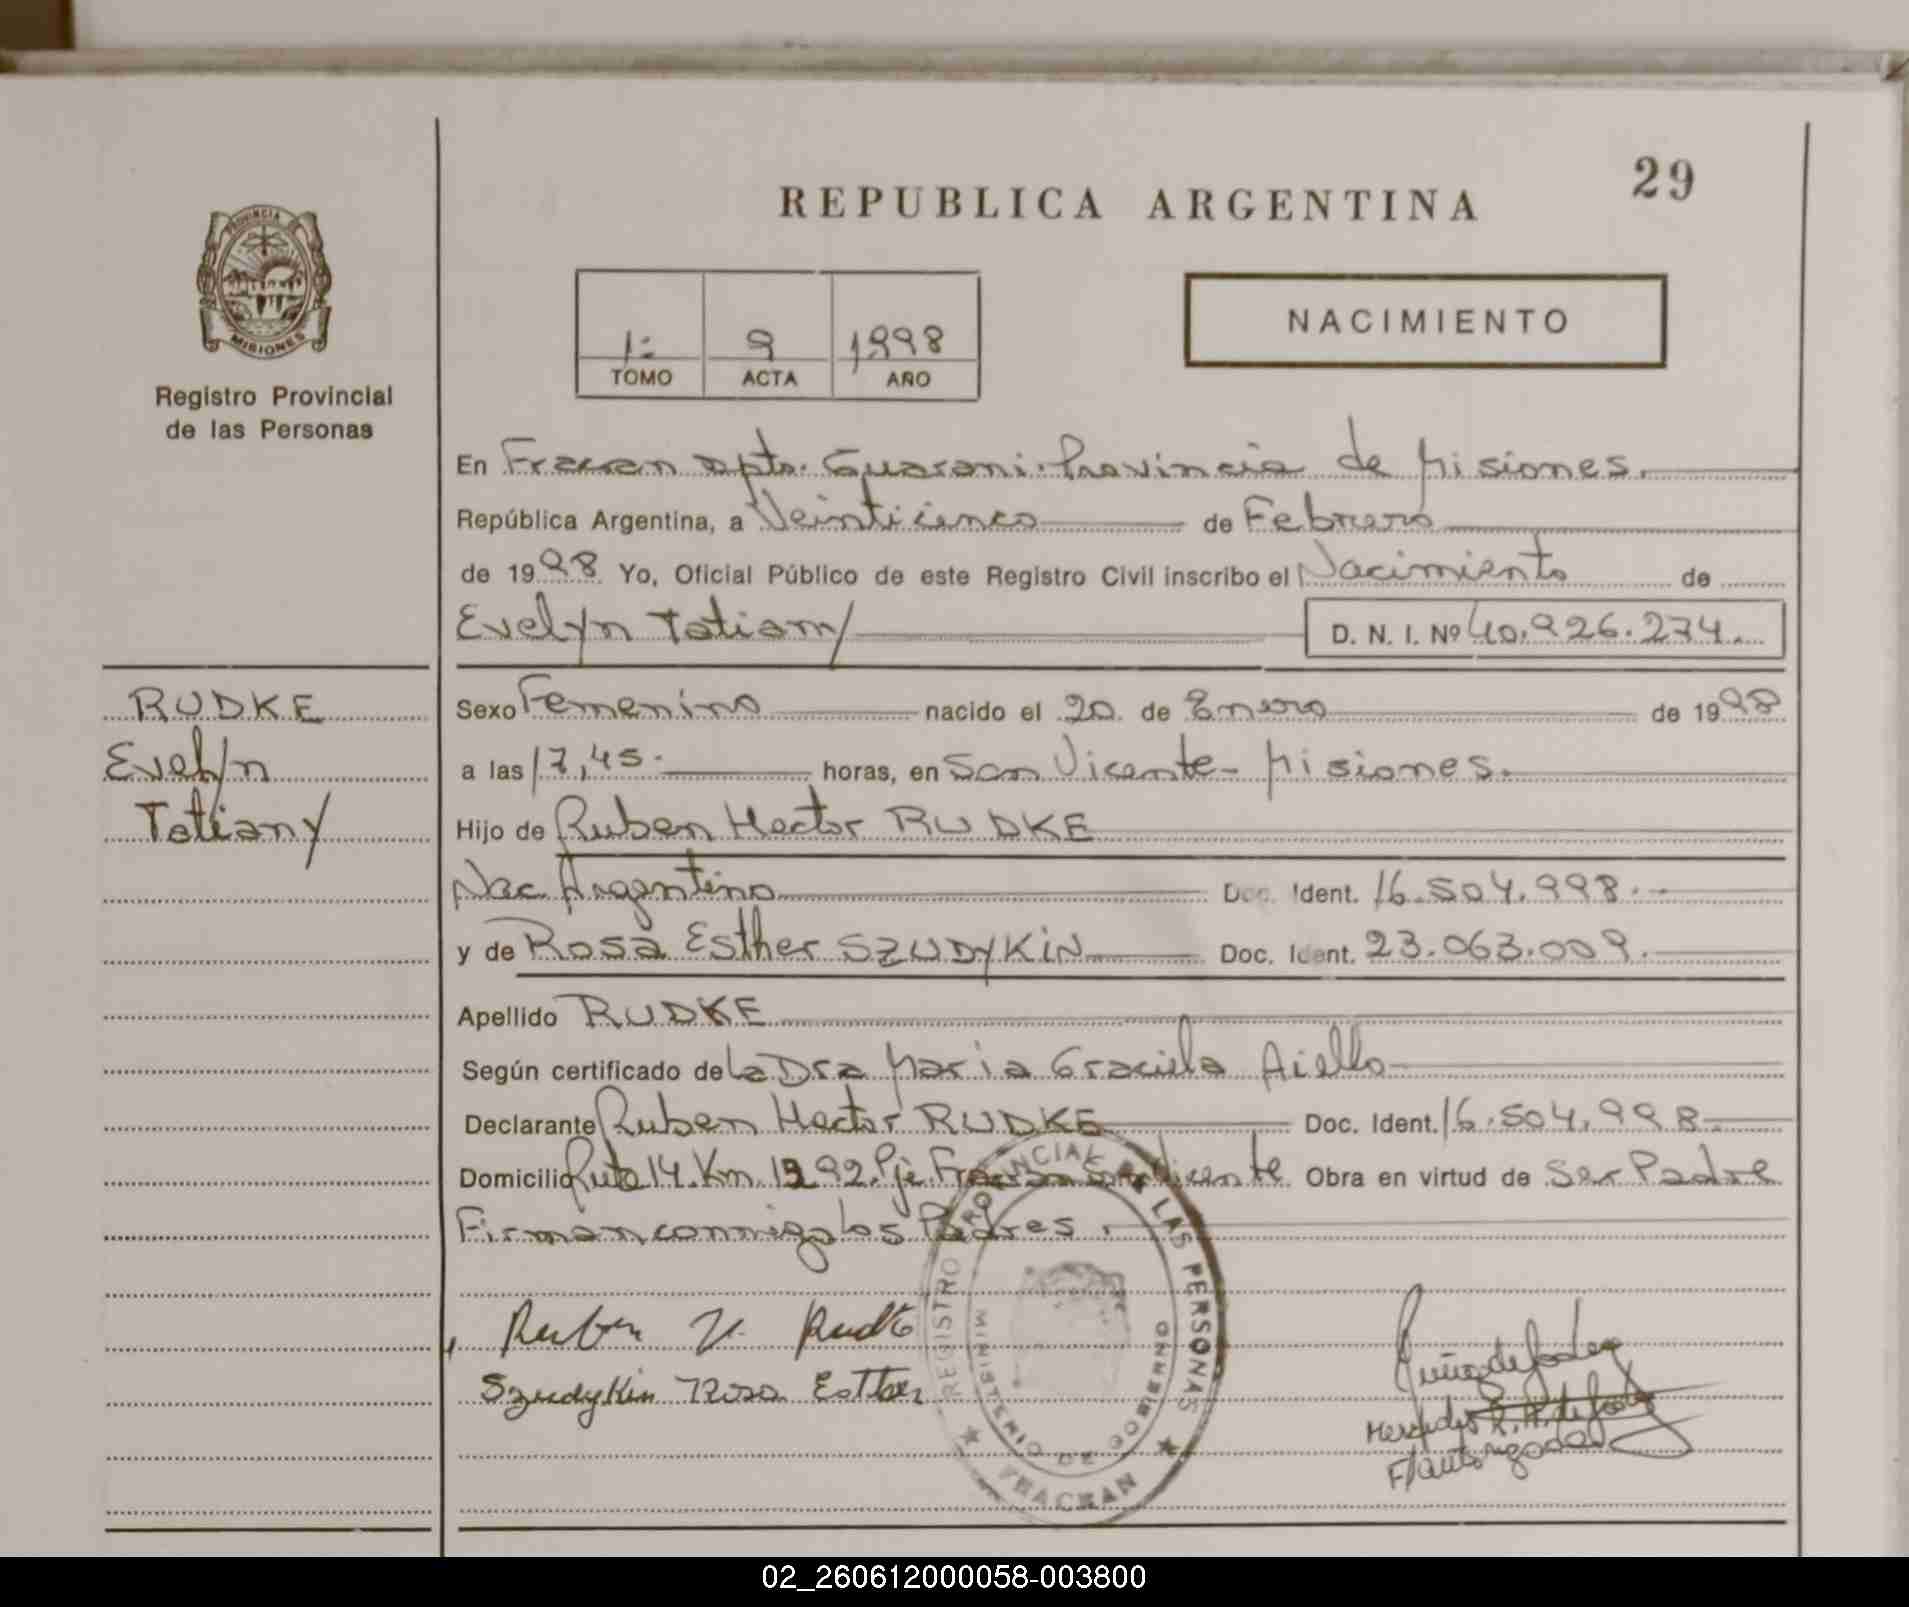 29
REPUBLICA ARGENTINA
PROVINCIA
MISIONES
Registro Provincial
de las Personas
1= 9 1998
TOMO ACTA AÑO
NACIMIENTO
En Fracran Dpto. Guarani. Provincia de Misiones.
República Argentina, a Veinticinco de Febrero
de 1998 Yo, Oficial Público de este Registro Civil inscribo el Nacimiento de
Evelyn Tatiany D. N. I. Nº 40.926.274.
RUDKE
Evelyn
Tatiany
Sexo Femenino nacido el 20 de Enero de 1998
a las 17,45. horas, en San Vicente - Misiones.
Hijo de Ruben Hector RUDKE
Nac. Argentino Doc. Ident. 16.504.998.-
y de Rosa Esther SZUDYKIN Doc. Ident. 23.063.009.
Apellido RUDKE
Según certificado de La Dra Maria Graciela Aiello
Declarante Ruben Hector RUDKE Doc. Ident. 16.504.998.
Domicilio Ruta 14. Km. 1292. Pje. Fracran San Vicente Obra en virtud de Ser Padre
Firman conmigo los Padres.
Ruben H. Rudke
Szudykin Rosa Esther
REGISTRO PROVINCIAL DE LAS PERSONAS
MINISTERIO DE GOBIERNO
FRACRAN
02_260612000058-003800